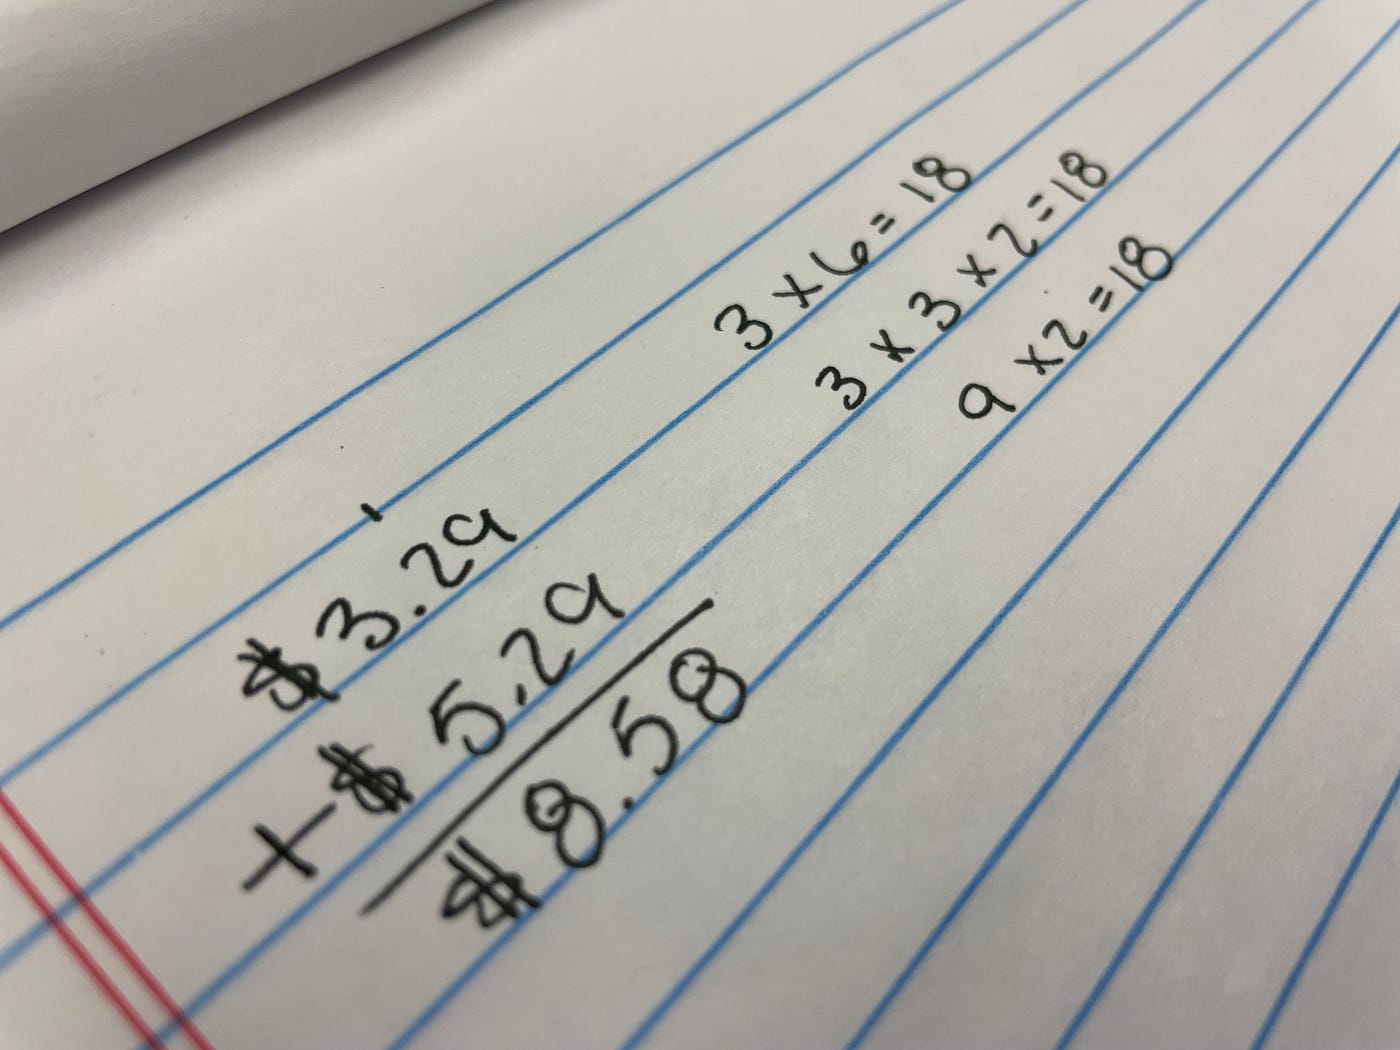 3 x 6 = 18
3 x 3 x 2 = 18
9 x 2 = 18
1
$3.29
+ $5.29
$8.58